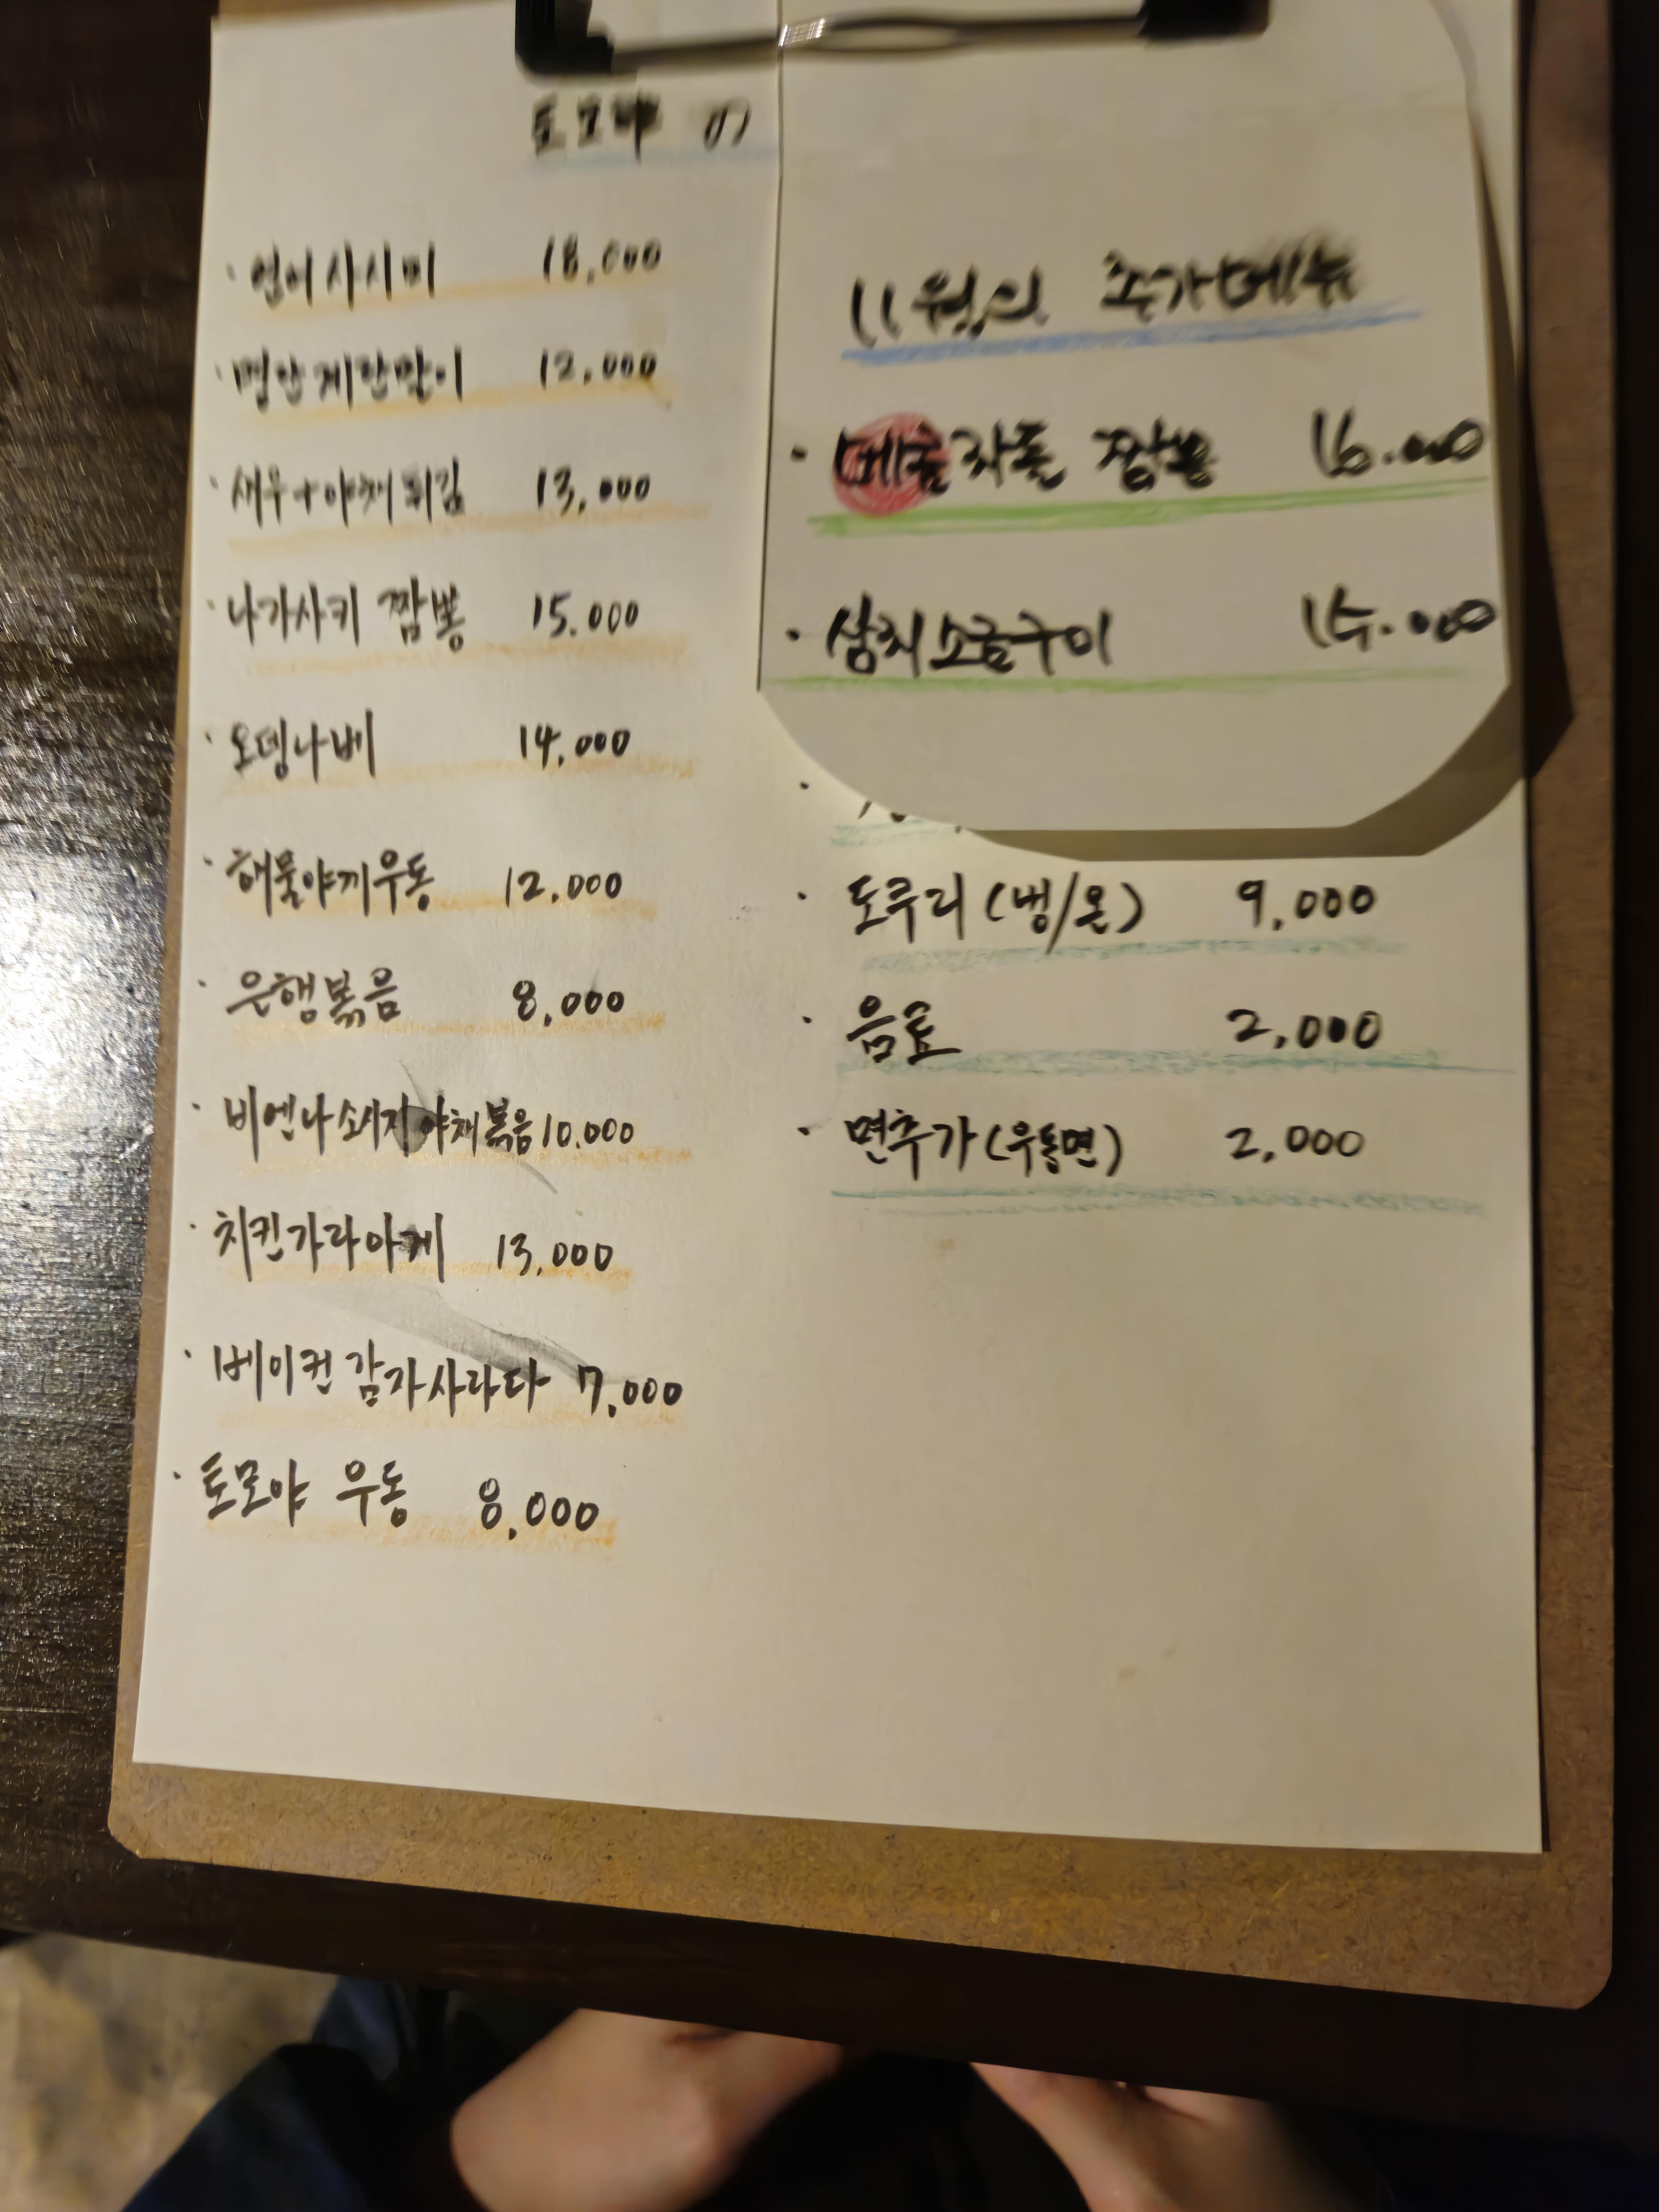 토모야 の
· 연어사시미 18,000
· 명란계란말이 12,000
· 새우+야채튀김 13,000
· 나가사키 짬뽕 15.000
· 오뎅나베 14.000
· 해물야끼우동 12,000
· 은행볶음 8,000
· 비엔나소시지야채볶음 10.000
· 치킨가라아게 13,000
· 베이컨감자사라다 7,000
· 토모야 우동 8,000
11월의 추가메뉴
· 차돌 짬뽕 16.000
· 삼치소금구이 15.000
· 도쿠리(냉/온) 9,000
· 음료 2,000
· 면추가(우동면) 2,000